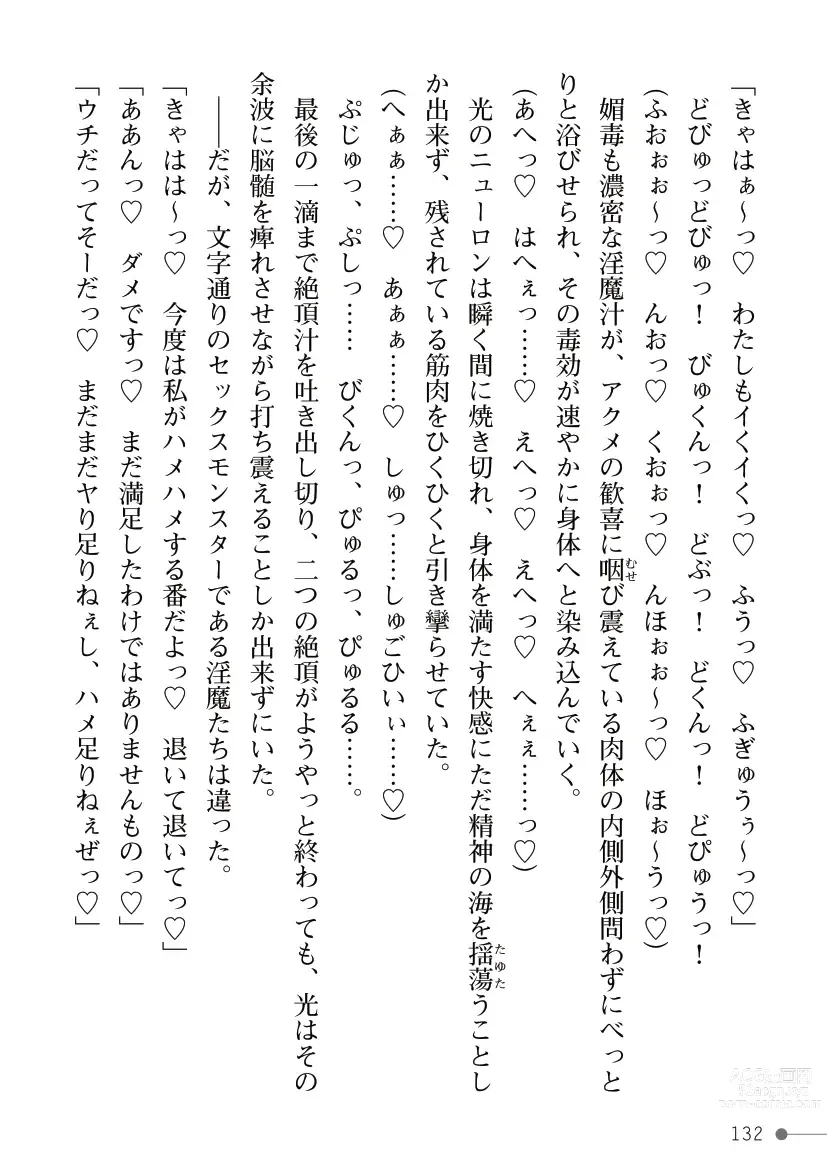 「きゃはぁ～っ♡　わたしもイくイくっ♡　ふうっ♡　ふぎゅうぅ～っ♡」
どびゅっどびゅっ！　びゅくんっ！　どぶっ！　どくんっ！　どぴゅうっ！
(ふおぉぉ～っ♡　んおっ♡　くおぉっ♡　んほぉぉ～っ♡　ほぉ～うっ♡)
媚毒も濃密な淫魔汁が、アクメの歓喜に咽び震えている肉体の内側外側問わずにべっと
むせ
りと浴びせられ、その毒効が速やかに身体へと染み込んでいく。
(あへっ♡　はへぇっ……♡　えへっ♡　えへっ♡　へぇぇ……っ♡)
光のニューロンは瞬く間に焼き切れ、身体を満たす快感にただ精神の海を揺蕩うことし
たゆた
か出来ず、残されている筋肉をひくひくと引き攣らせていた。
(へぁぁ……♡　あぁぁ……♡　しゅっ……しゅごひいぃ……♡)
ぷじゅっ、ぷしっ……　びくんっ、ぴゅるっ、ぴゅるる……。
最後の一滴まで絶頂汁を吐き出し切り、二つの絶頂がようやっと終わっても、光はその
余波に脳髄を痺れさせながら打ち震えることしか出来ずにいた。
――だが、文字通りのセックスモンスターである淫魔たちは違った。
「きゃはは～っ♡　今度は私がハメハメする番だよっ♡　退いて退いてっ♡」
「ああんっ♡　ダメですっ♡　まだ満足したわけではありませんものっ♡」
「ウチだってそーだっ♡　まだまだヤり足りねぇし、ハメ足りねぇぜっ♡」
132